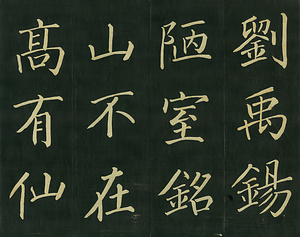 劉禹錫
陋室銘
山不在
高有仙